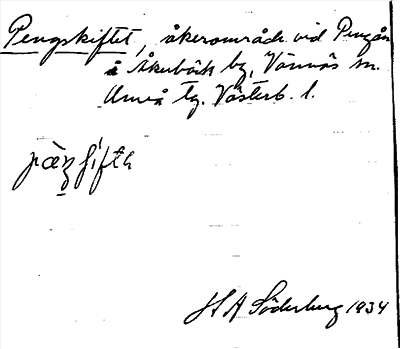 Pengskiftet, åkerområde vid Pengån
å Åkerbäck by, Vännäs sn.
Umeå tg. Västerb. l.
H A Söderberg 1934